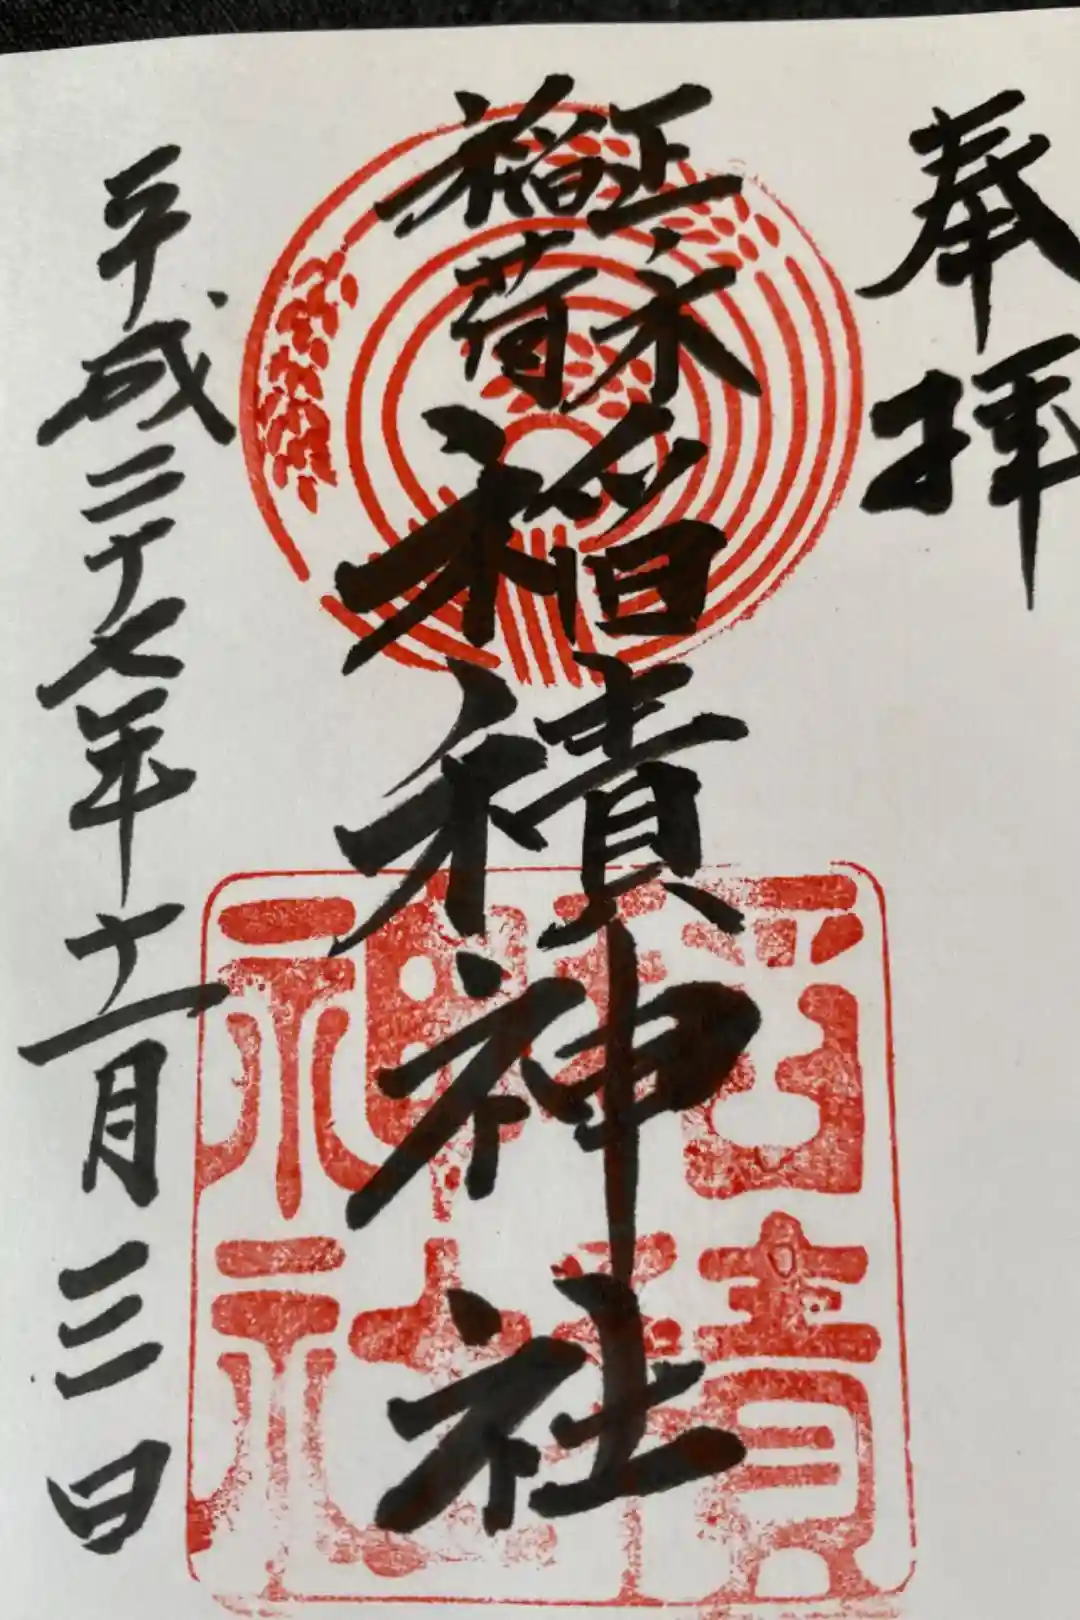 奉拝
正ノ木
稲荷
稲積神社
平成二十七年十一月三日
稲積
神社